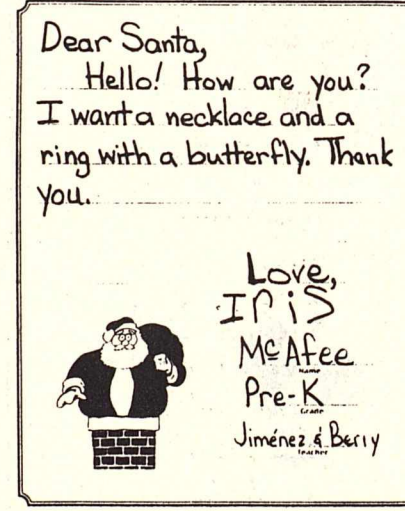 Dear Santa,
Hello! How are you?
I want a necklace and a
ring with a butterfly. Thank
you.
Love,
Iris
McAfee
Name
Pre-K
Grade
Jiménez & Berry
Teacher